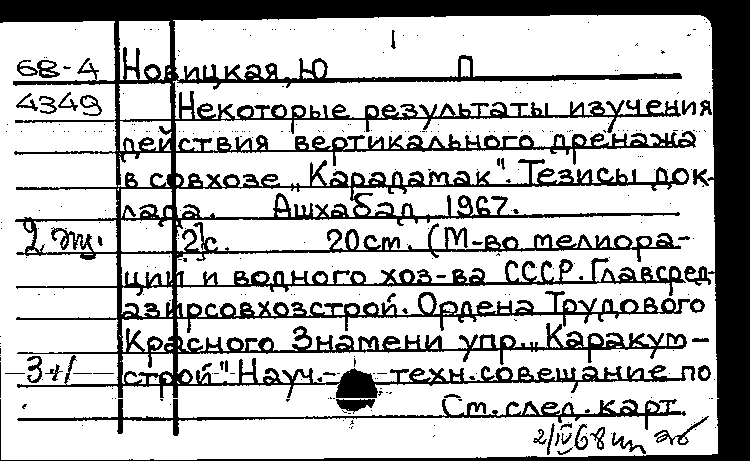 68-4 Новицкая, Ю П
4349 Некоторые результаты изучения
действия вертикального дренажа
в совхозе „Карадамак". Тезисы док-
лада. Ашхабад, 1967.
2 [2]с. 20см. (М-во мелиора-
ции и водного хоз-ва СССР. Главсред-
азирсовхозстрой. Ордена Трудового
Красного Знамени упр. „Каракум-
3+1 строй". Науч.- техн. совещание по
См. след. карт.
2/IV 68